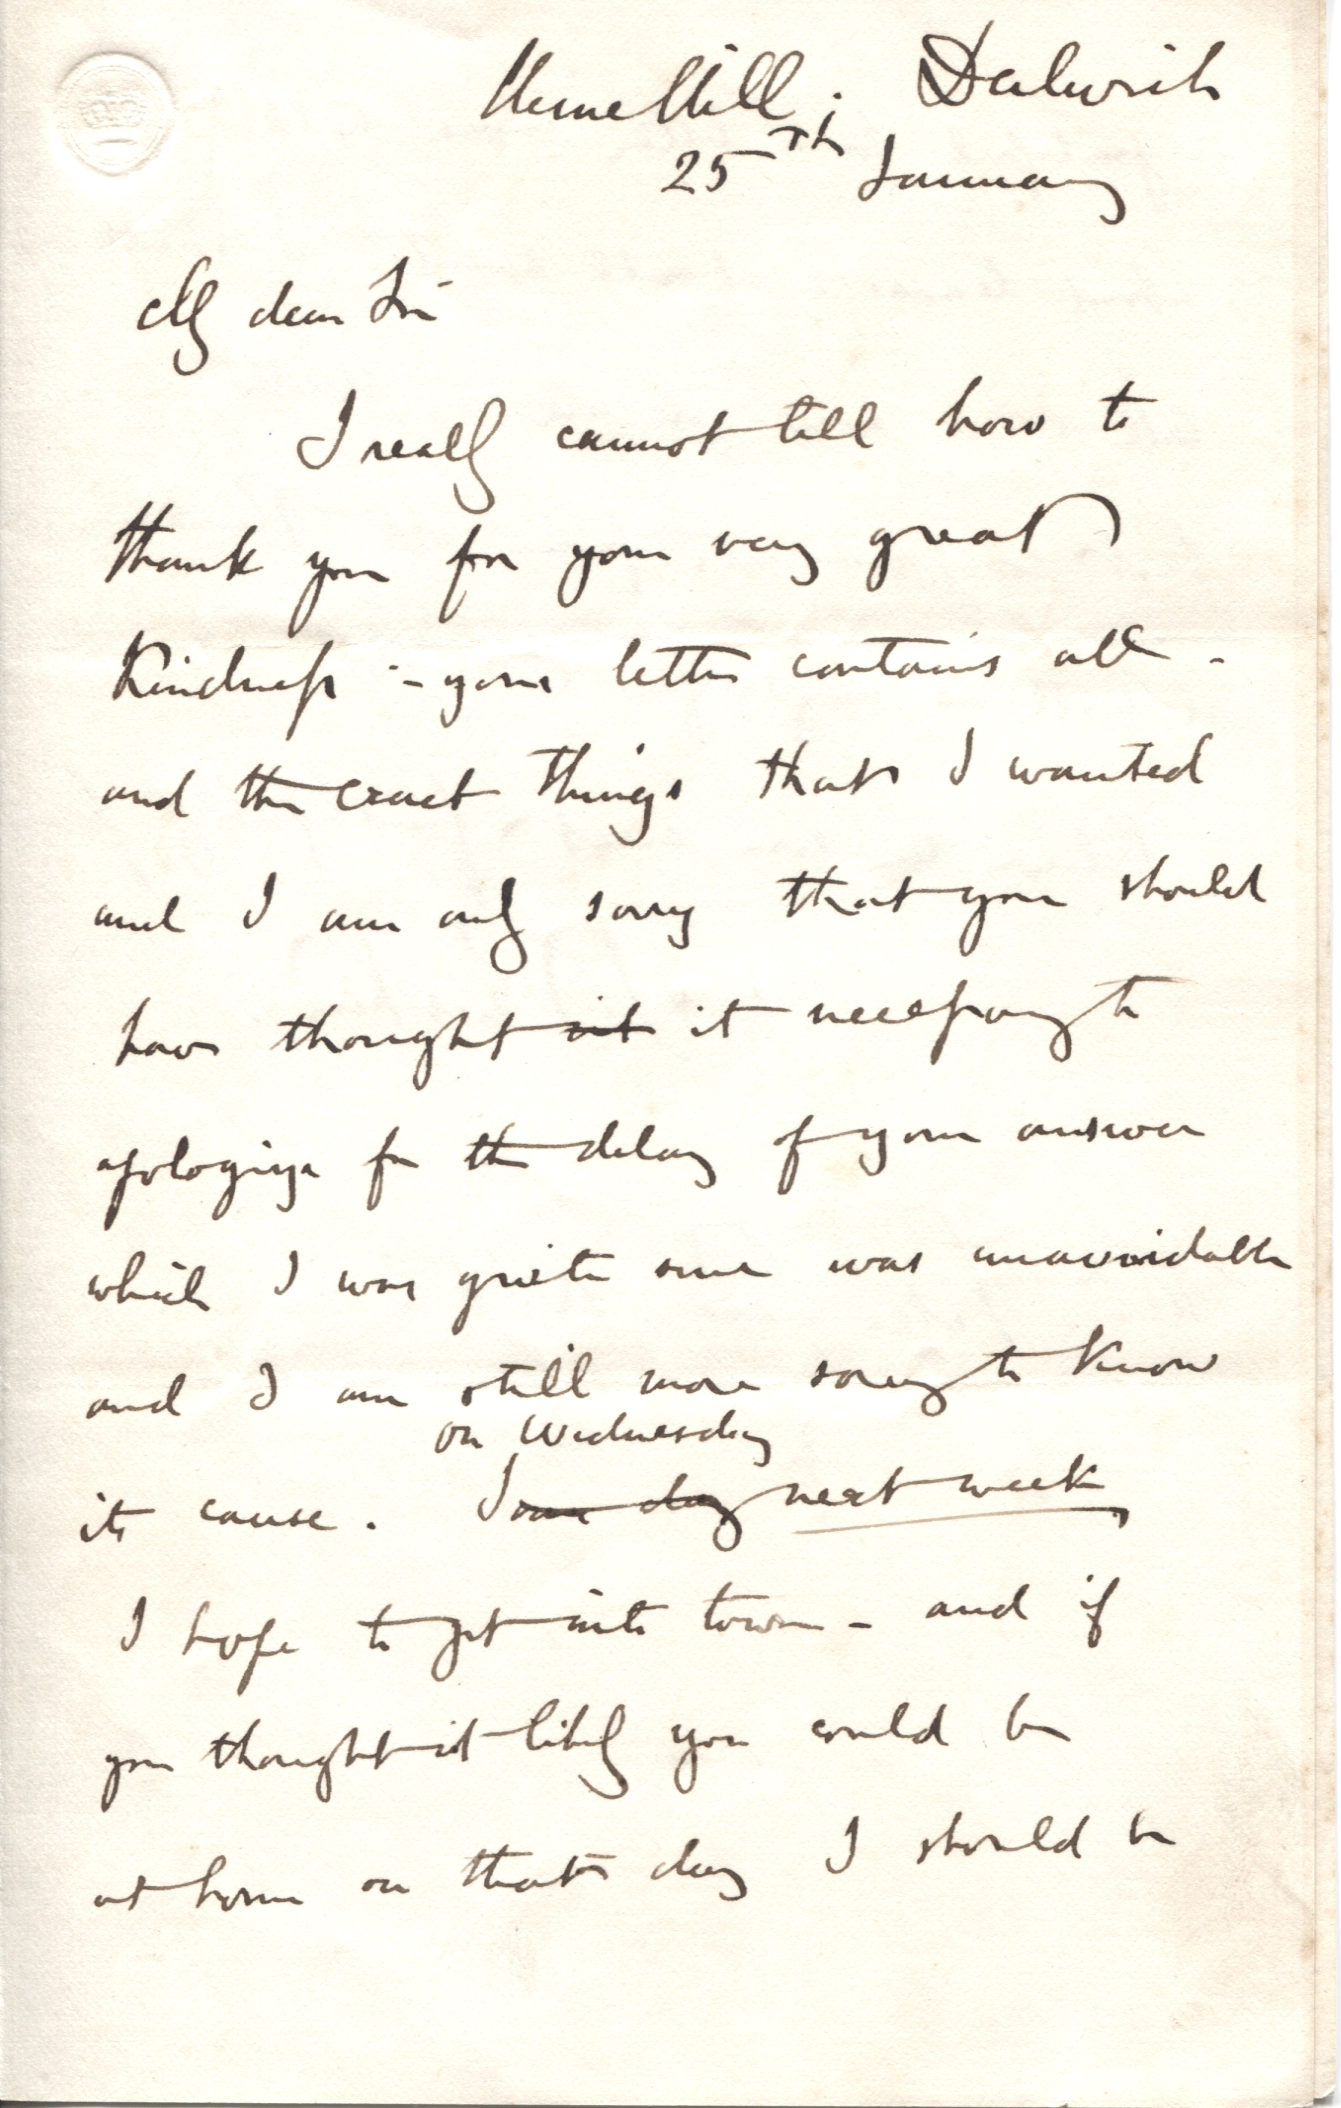 Herne Hill; Dulwich
25Th January
My dear Sir
I really cannot tell how to
thank you for your very great
Kindness - your letter contains all -
and the exact things that I wanted
and I am only sorry that you should
have thought it necessary to
apologize for the delay of your answer
which I was quite sure was unavoidable
and I am still more sorry to Know
on Wednesday
its cause. next week
I hope to get into town - and if
you thought it likely you could be
at home on that day I should be